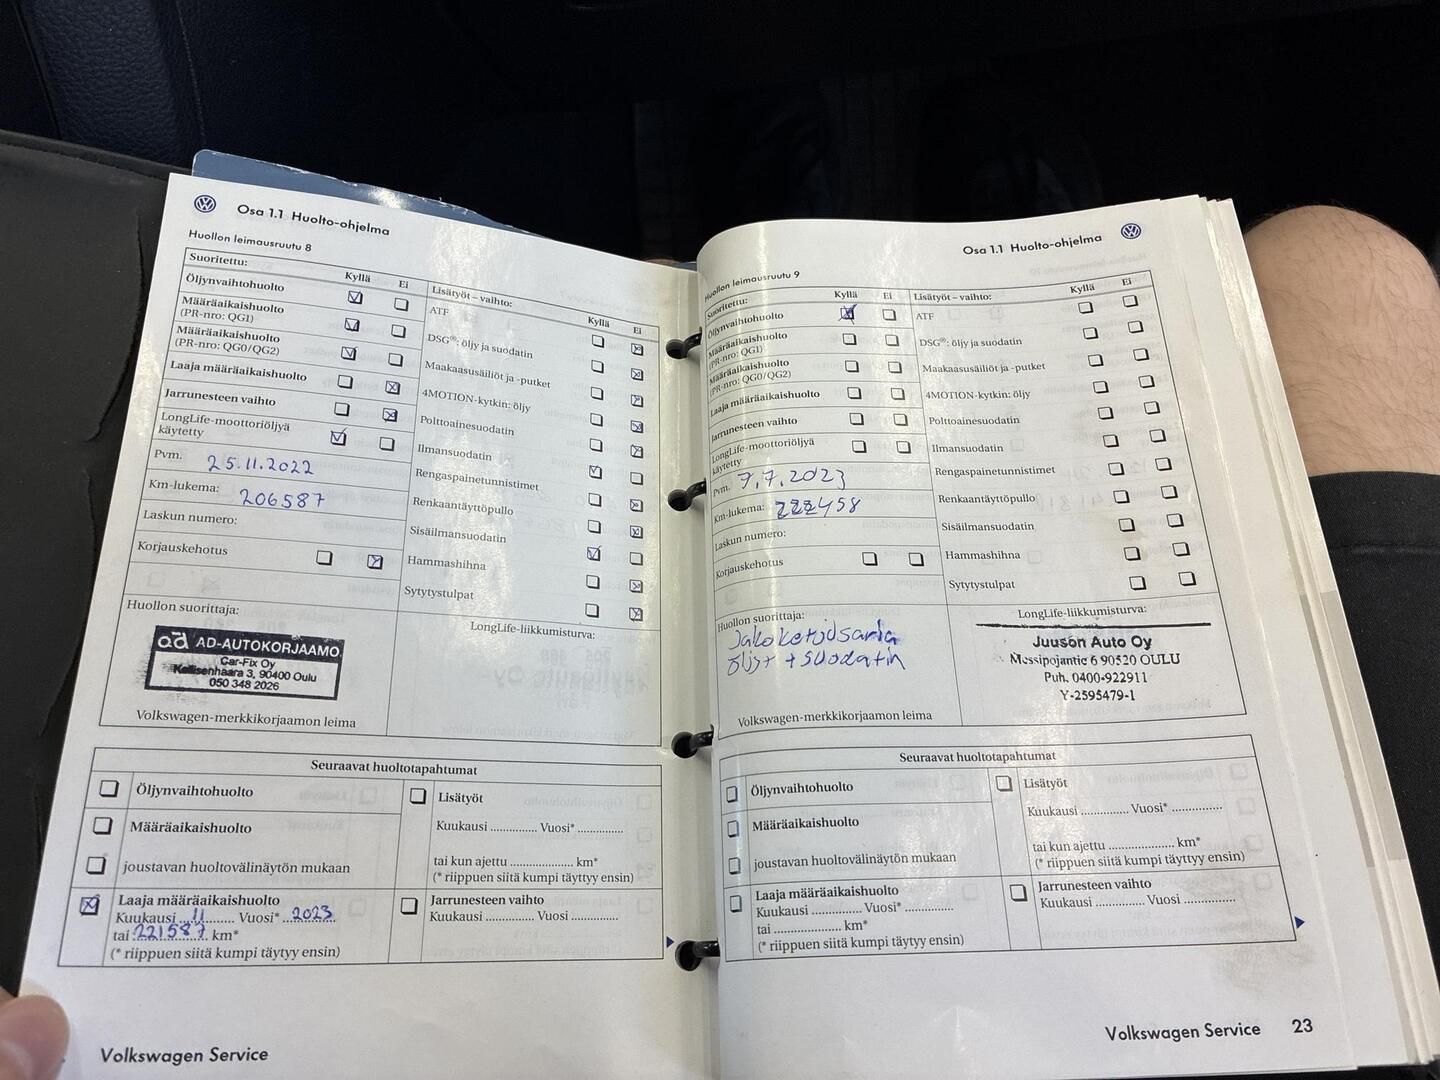 Osa 1.1 Huolto-ohjelma
Huollon leimausruutu 8
Suoritettu:
Kyllä Ei
Öljynvaihtohuolto
Määräaikaishuolto
(PR-nro: QG1)
Määräaikaishuolto
(PR-nro: QG0/QG2)
Laaja määräaikaishuolto
Jarrunesteen vaihto
LongLife-moottoriöljyä
käytetty
Pvm. 25.11.2022
Km-lukema: 206587
Laskun numero:
Korjauskehotus
Lisätyöt – vaihto:
Kyllä Ei
ATF
DSG®: öljy ja suodatin
Maakaasusäiliöt ja -putket
4MOTION-kytkin: öljy
Polttoainesuodatin
Ilmansuodatin
Rengaspainetunnistimet
Renkaantäyttöpullo
Sisäilmansuodatin
Hammashihna
Sytytystulpat
Huollon suorittaja:
ad AD-AUTOKORJAAMO
Car-Fix Oy
Kallisenhaara 3, 90400 Oulu
050 348 2026
Volkswagen-merkkikorjaamon leima
LongLife-liikkumisturva:
Seuraavat huoltotapahtumat
Öljynvaihtohuolto
Määräaikaishuolto
joustavan huoltovälinäytön mukaan
Laaja määräaikaishuolto
Kuukausi ..11.. Vuosi* ..2023
tai 221587 km*
(* riippuen siitä kumpi täytyy ensin)
Lisätyöt
Kuukausi .............. Vuosi* ..............
tai kun ajettu ................... km*
(* riippuen siitä kumpi täytyy ensin)
Jarrunesteen vaihto
Kuukausi .............. Vuosi ..............
Volkswagen Service
Osa 1.1 Huolto-ohjelma
Huollon leimausruutu 9
Suoritettu:
Kyllä Ei
Öljynvaihtohuolto
Määräaikaishuolto
(PR-nro: QG1)
Määräaikaishuolto
(PR-nro: QG0/QG2)
Laaja määräaikaishuolto
Jarrunesteen vaihto
LongLife-moottoriöljyä
käytetty
Pvm. 7.7.2023
Km-lukema: 222458
Laskun numero:
Korjauskehotus
Lisätyöt – vaihto:
Kyllä Ei
ATF
DSG®: öljy ja suodatin
Maakaasusäiliöt ja -putket
4MOTION-kytkin: öljy
Polttoainesuodatin
Ilmansuodatin
Rengaspainetunnistimet
Renkaantäyttöpullo
Sisäilmansuodatin
Hammashihna
Sytytystulpat
Huollon suorittaja:
Jakoketjusarja
öljyt + suodatin
Volkswagen-merkkikorjaamon leima
LongLife-liikkumisturva:
Juuson Auto Oy
Messipojantie 6 90520 OULU
Puh. 0400-922911
Y-2595479-1
Seuraavat huoltotapahtumat
Öljynvaihtohuolto
Määräaikaishuolto
joustavan huoltovälinäytön mukaan
Laaja määräaikaishuolto
Kuukausi .............. Vuosi* ..............
tai ................... km*
(* riippuen siitä kumpi täytyy ensin)
Lisätyöt
Kuukausi .............. Vuosi* ..............
tai kun ajettu ................... km*
(* riippuen siitä kumpi täytyy ensin)
Jarrunesteen vaihto
Kuukausi .............. Vuosi ..............
Volkswagen Service 23